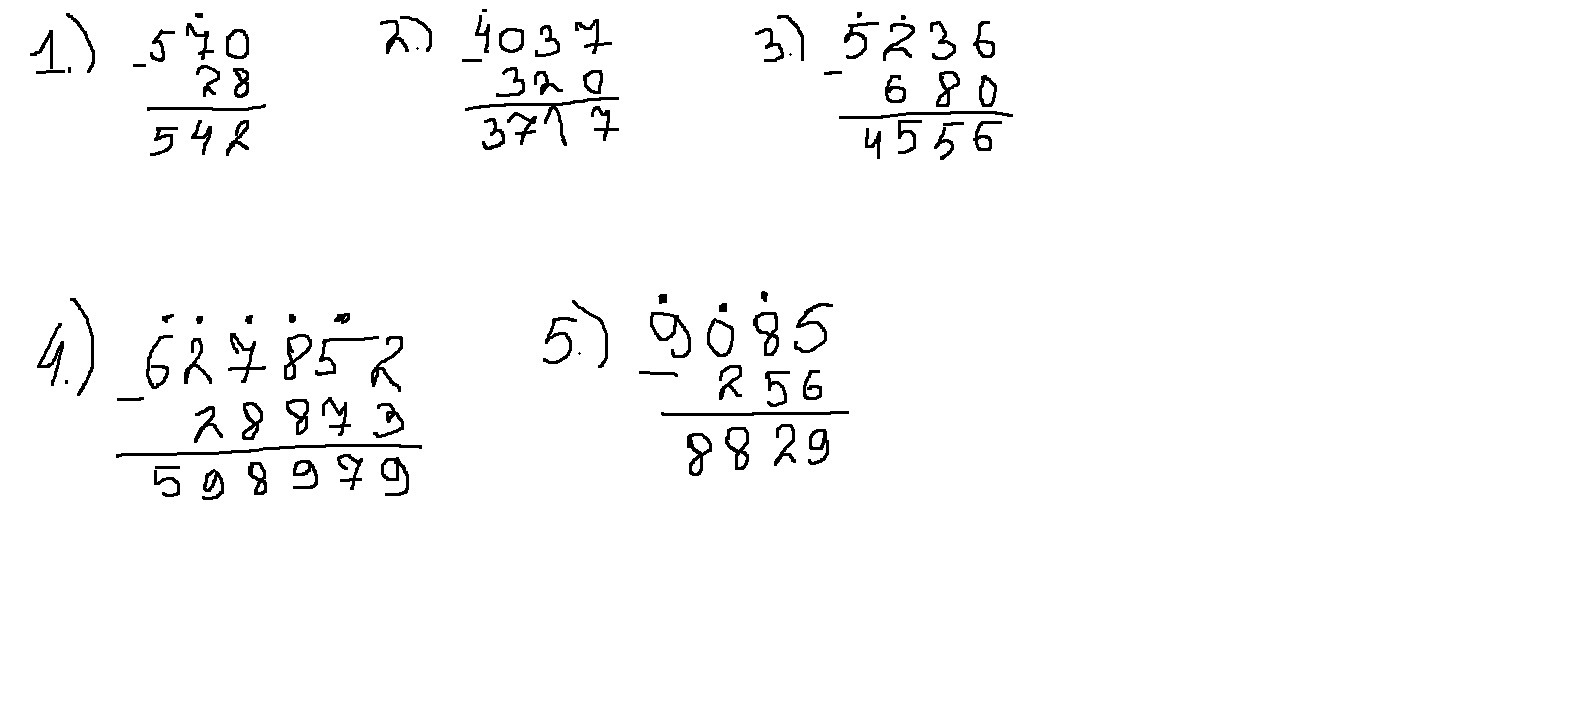 1.) 570 2.) 4037 3.) 5236
- 28 - 320 - 680
542 3717 4556
4.) 627852 5.) 9085
- 28873 - 256
598979 8829